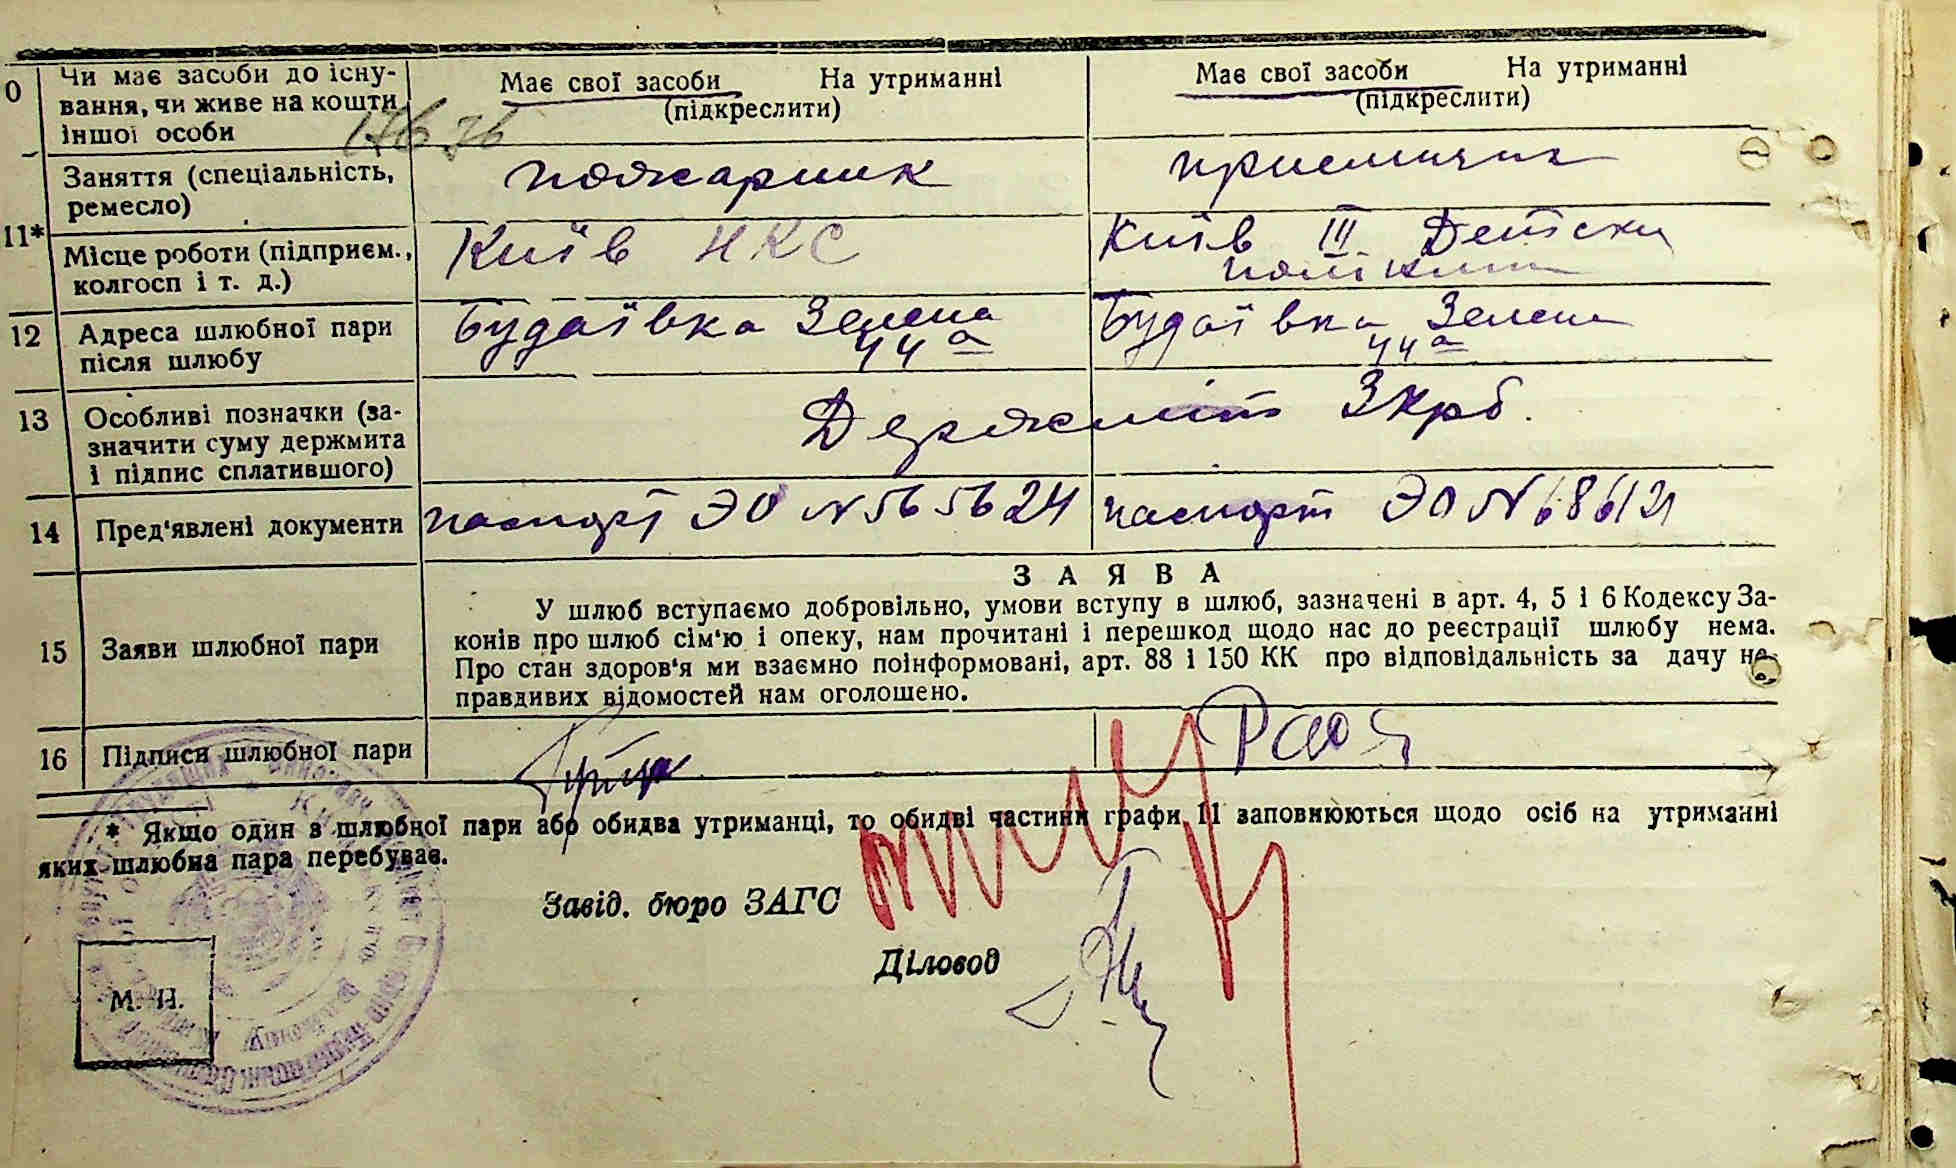 0 Чи має засоби до існу-
вання, чи живе на кошти
іншої особи
Має свої засоби На утриманні
(підкреслити)
Має свої засоби На утриманні
(підкреслити)
11*
Заняття (спеціальність,
ремесло)
пожарник
Місце роботи (підприєм.,
колгосп і т. д.)
Київ НКС
Київ III Детска
12 Адреса шлюбної пари
після шлюбу
Будаївка Зелена
44а
Будаївка Зелена
44а
13 Особливі позначки (за-
значити суму держмита
і підпис сплатившого)
Держмито 3 крб.
14 Пред'явлені документи
паспорт ЭО N 565624
паспорт ЭО N 686121
ЗАЯВА
15 Заяви шлюбної пари
У шлюб вступаємо добровільно, умови вступу в шлюб, зазначені в арт. 4, 5 і 6 Кодексу За-
конів про шлюб сім'ю і опеку, нам прочитані і перешкод щодо нас до реєстрації шлюбу нема.
Про стан здоров'я ми взаємно поінформовані, арт. 88 і 150 КК про відповідальність за дачу не-
правдивих відомостей нам оголошено.
16 Підписи шлюбної пари
* Якщо один з шлюбної пари або обидва утриманці, то обидві частини графи 11 заповнюються щодо осіб на утриманні
яких шлюбна пара перебуває.
Завід. бюро ЗАГС
Діловод
М. П.